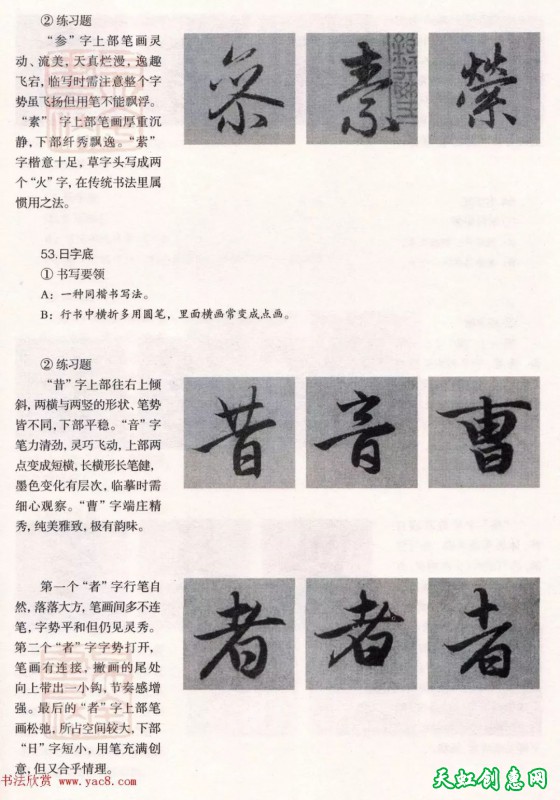 ② 练习题
“参”字上部笔画灵
动、流美，天真烂漫，逸趣
飞宕，临写时需注意整个字
势虽飞扬但用笔不能飘浮。
“素”字上部笔画厚重沉
静，下部纤秀飘逸。“萦”
字楷意十足，草字头写成两
个“火”字，在传统书法里属
惯用之法。
53.日字底
① 书写要领
A：一种同楷书写法。
B：行书中横折多用圆笔，里面横画常变成点画。
② 练习题
“昔”字上部往右上倾
斜，两横与两竖的形状、笔势
皆不同，下部平稳。“音”字
笔力清劲，灵巧飞动，上部两
点变成短横，长横形长笔健，
墨色变化有层次，临摹时需
细心观察。“曹”字端庄精
秀，纯美雅致，极有韵味。
昔 音 曹
第一个“者”字行笔自
然，落落大方，笔画间多不连
笔，字势平和但仍见灵秀。
第二个“者”字字势打开，
笔画有连接，撇画的尾处
向上带出一小钩，节奏感增
强。最后的“者”字上部笔
画松弛，所占空间较大，下部
“日”字短小，用笔充满创
意，但又合乎情理。
者 者 者
书法欣赏 www.yac8.com
天虹创意网